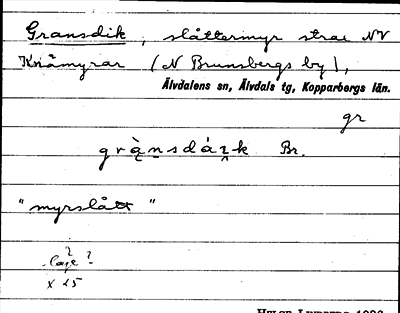 Gransdik, slåttermyr strax NV
Knåmyrar (N Brunsbergs by),
Älvdalens sn, Älvdals tg, Kopparbergs län.
gr
Br.
"myrslått"
?
läge?
x 25